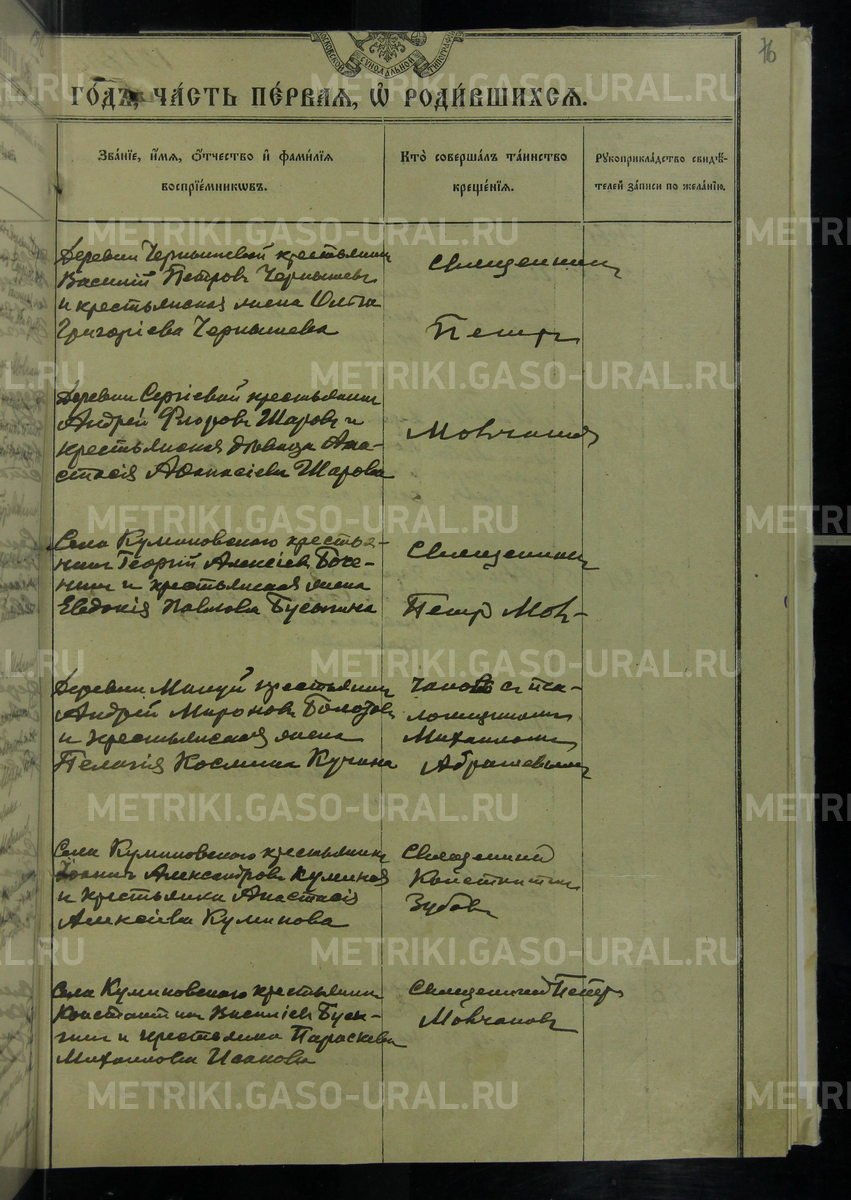 76
МОСКОВСКОЙ СУНОДАЛЬНОЙ ТИПОГРАФІИ
ГО́ДЪ, ЧА́СТЬ ПЕ́РВАѦ, Ѡ҆ РОДИ́ВШИХСѦ.
Зва́нїе, и҆́мѧ, ѻ҆́тчество и҆ фами́лїѧ
воспрїе́мникѡвъ.
Кто̀ соверша́лъ та́инство
креще́нїѧ.
Рꙋкоприкла́дство свидѣ́-
телей за́писи по жела́нїю.
Деревни Чернышевой крестьянин
Василій Петровъ Чернышевъ
и крестьянская жена Ольга
Григоріева Чернышева
Священник
Петръ
Деревни Сергіевой крестьянин
Андрей Флоровъ Шаровъ и
крестьянская дѣвица Ана-
стасія Аѳанасіева Шарова
Мовчанов
Села Куминовского крестья-
нин Георгій Алексіев
и крестьянская жена
Евдокія Павлова Бусыгина
Священник
Петр Мов-
Деревни крестьянин
Андрей Миронов
и крестьянская жена
Пелагія Косьмина Кучина
чановъ с пса-
ломщиком
Михаилом
Абрашевым
Села Куминовского крестьянин
Іоаннъ Александров
и крестьянка Анастасія
Алексіева Куминова
Священник
Константин
Зубов
Села Куминовского крестьянин
Константин
и крестьянка Параскева
Михаилова Исакова
Священник Петр
Мовчанов
METRIKI.GASO-URAL.RU